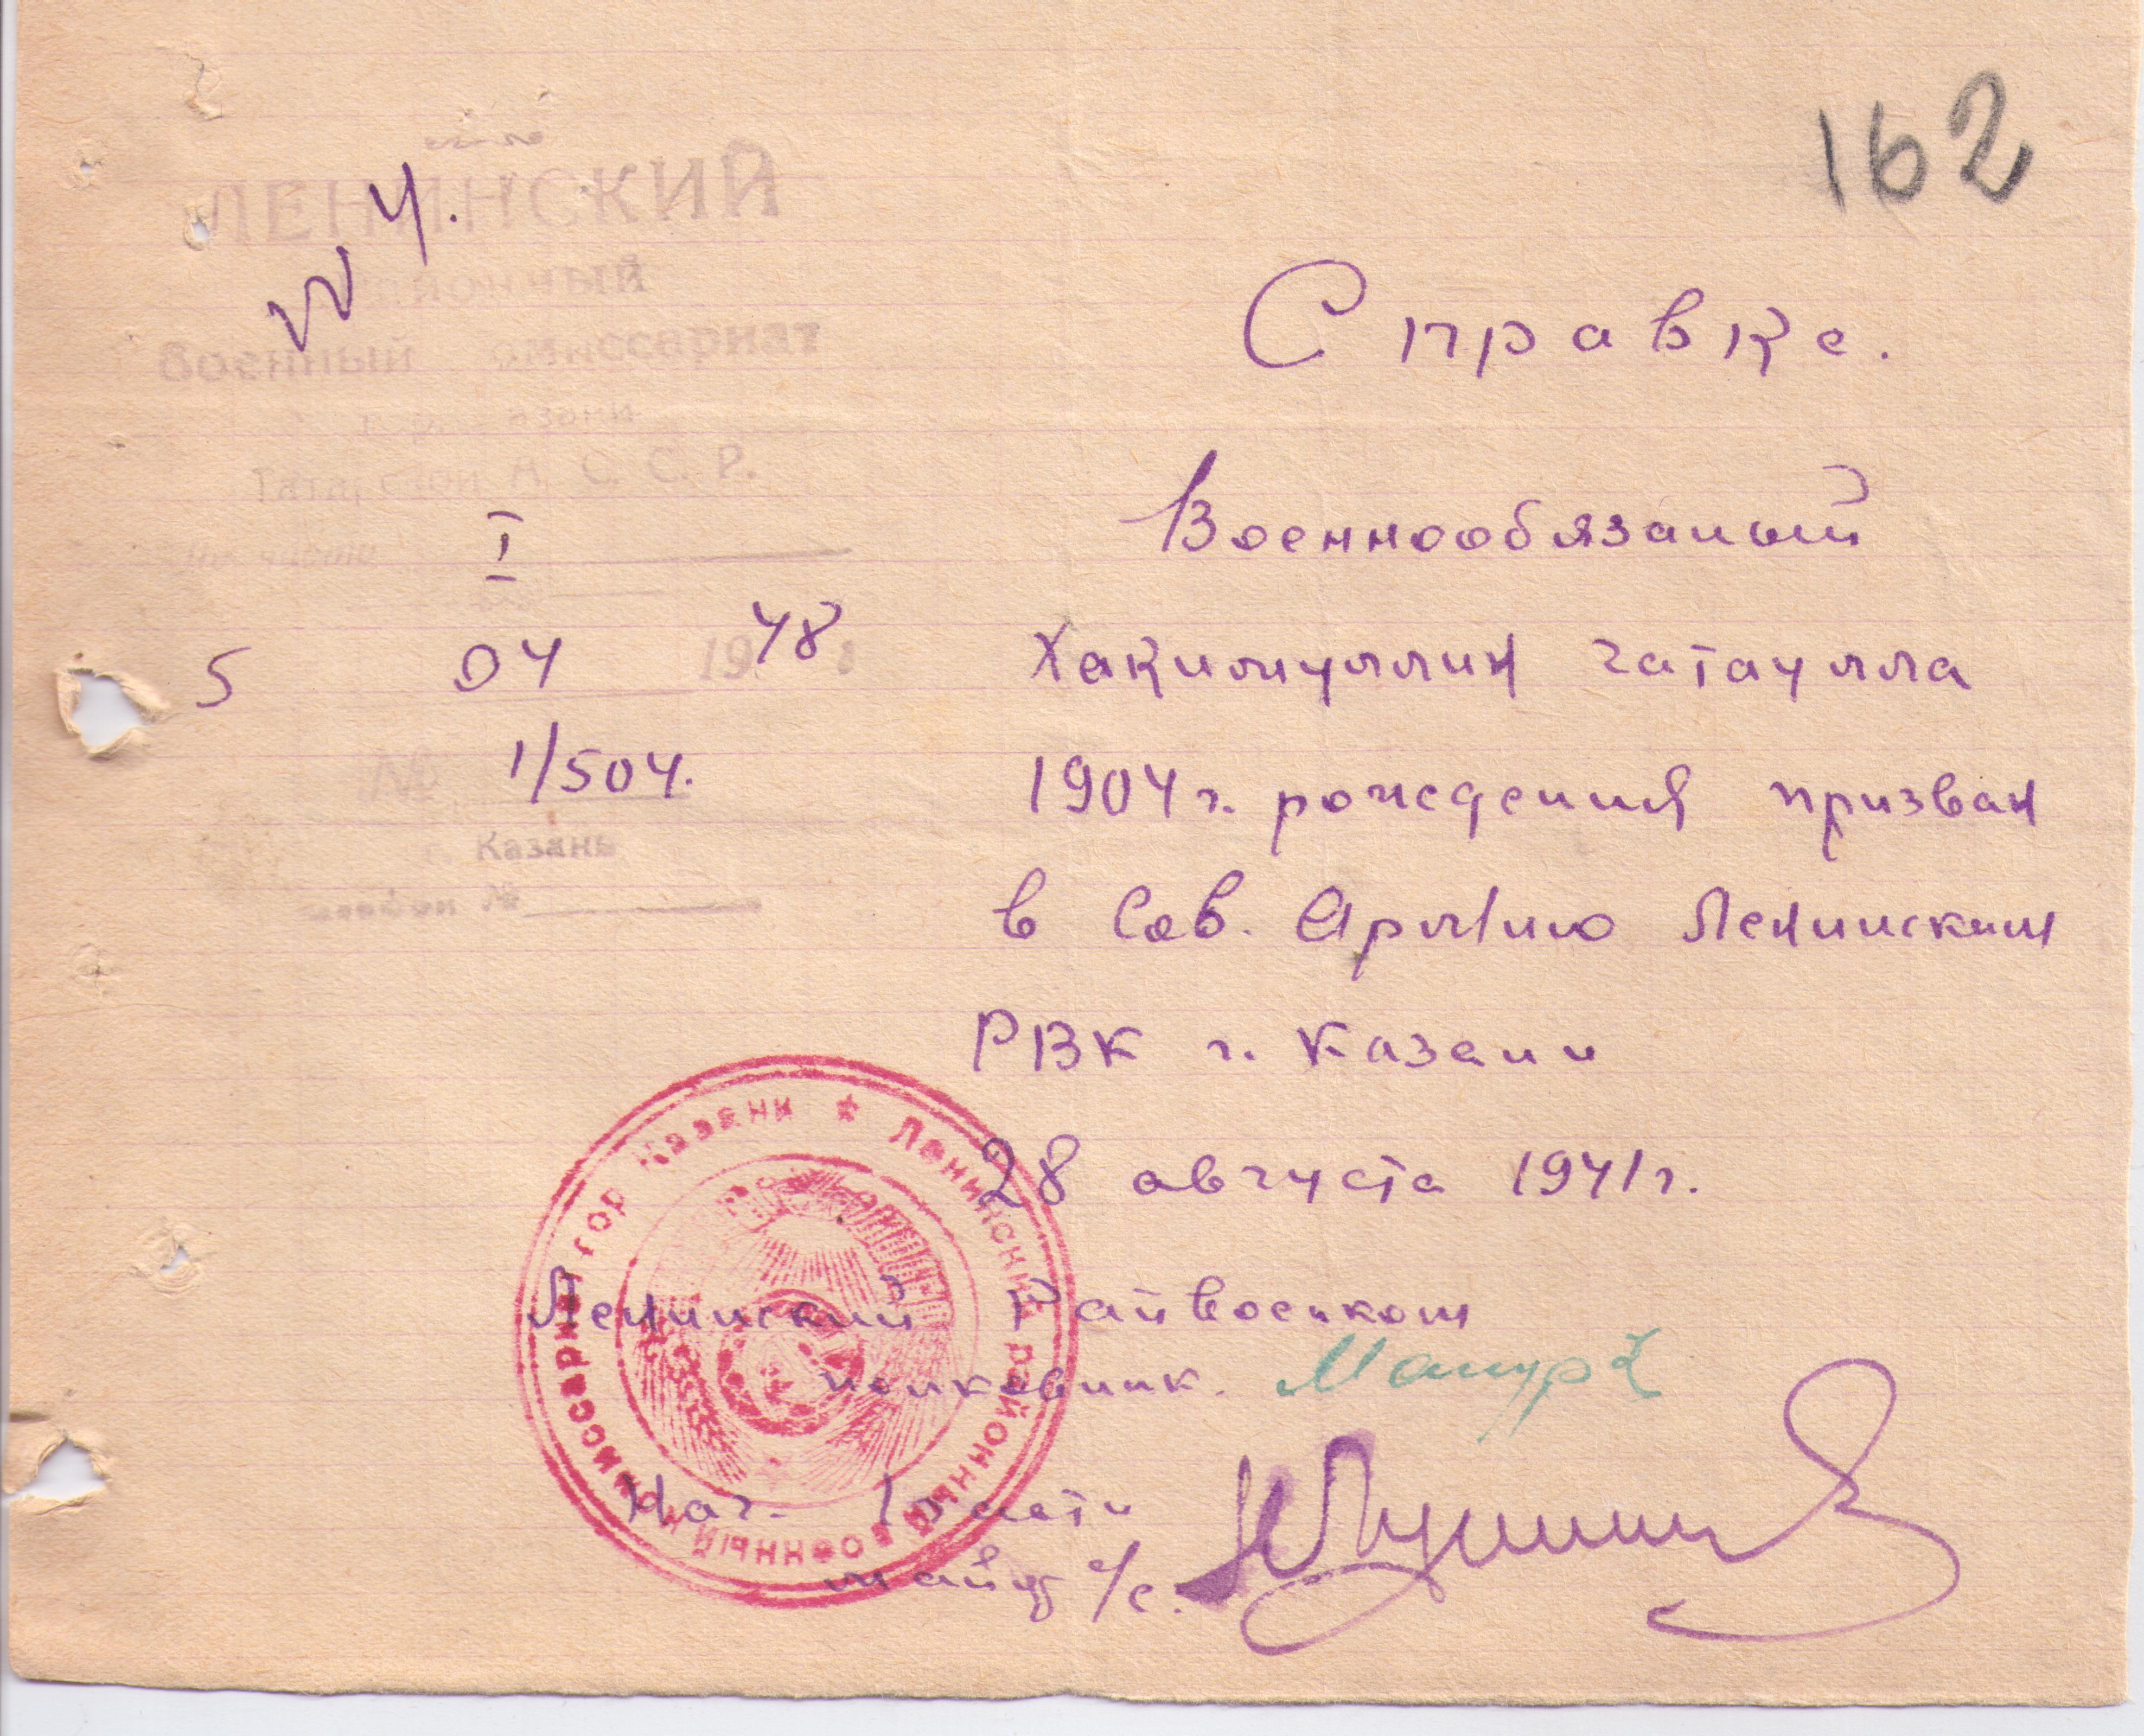 162
ЛЕНИНСКИЙ
Районный
Военный комиссариат
гор. Казани
Татарской А. С. С. Р.
По части I
5 04 1948 г
№ 1/504.
г. Казань
телефон №
Справка.
Военнообязаный
Хакимуллин Гатаулла
1904 г. рождения призван
в Сов. Армию Ленинским
РВК г. Казани
28 августа 1941 г.
Ленинский Райвоенком
полковник.
Нач. 1 части
майор а/с.
Ленинский районный военный комиссариат гор Казани